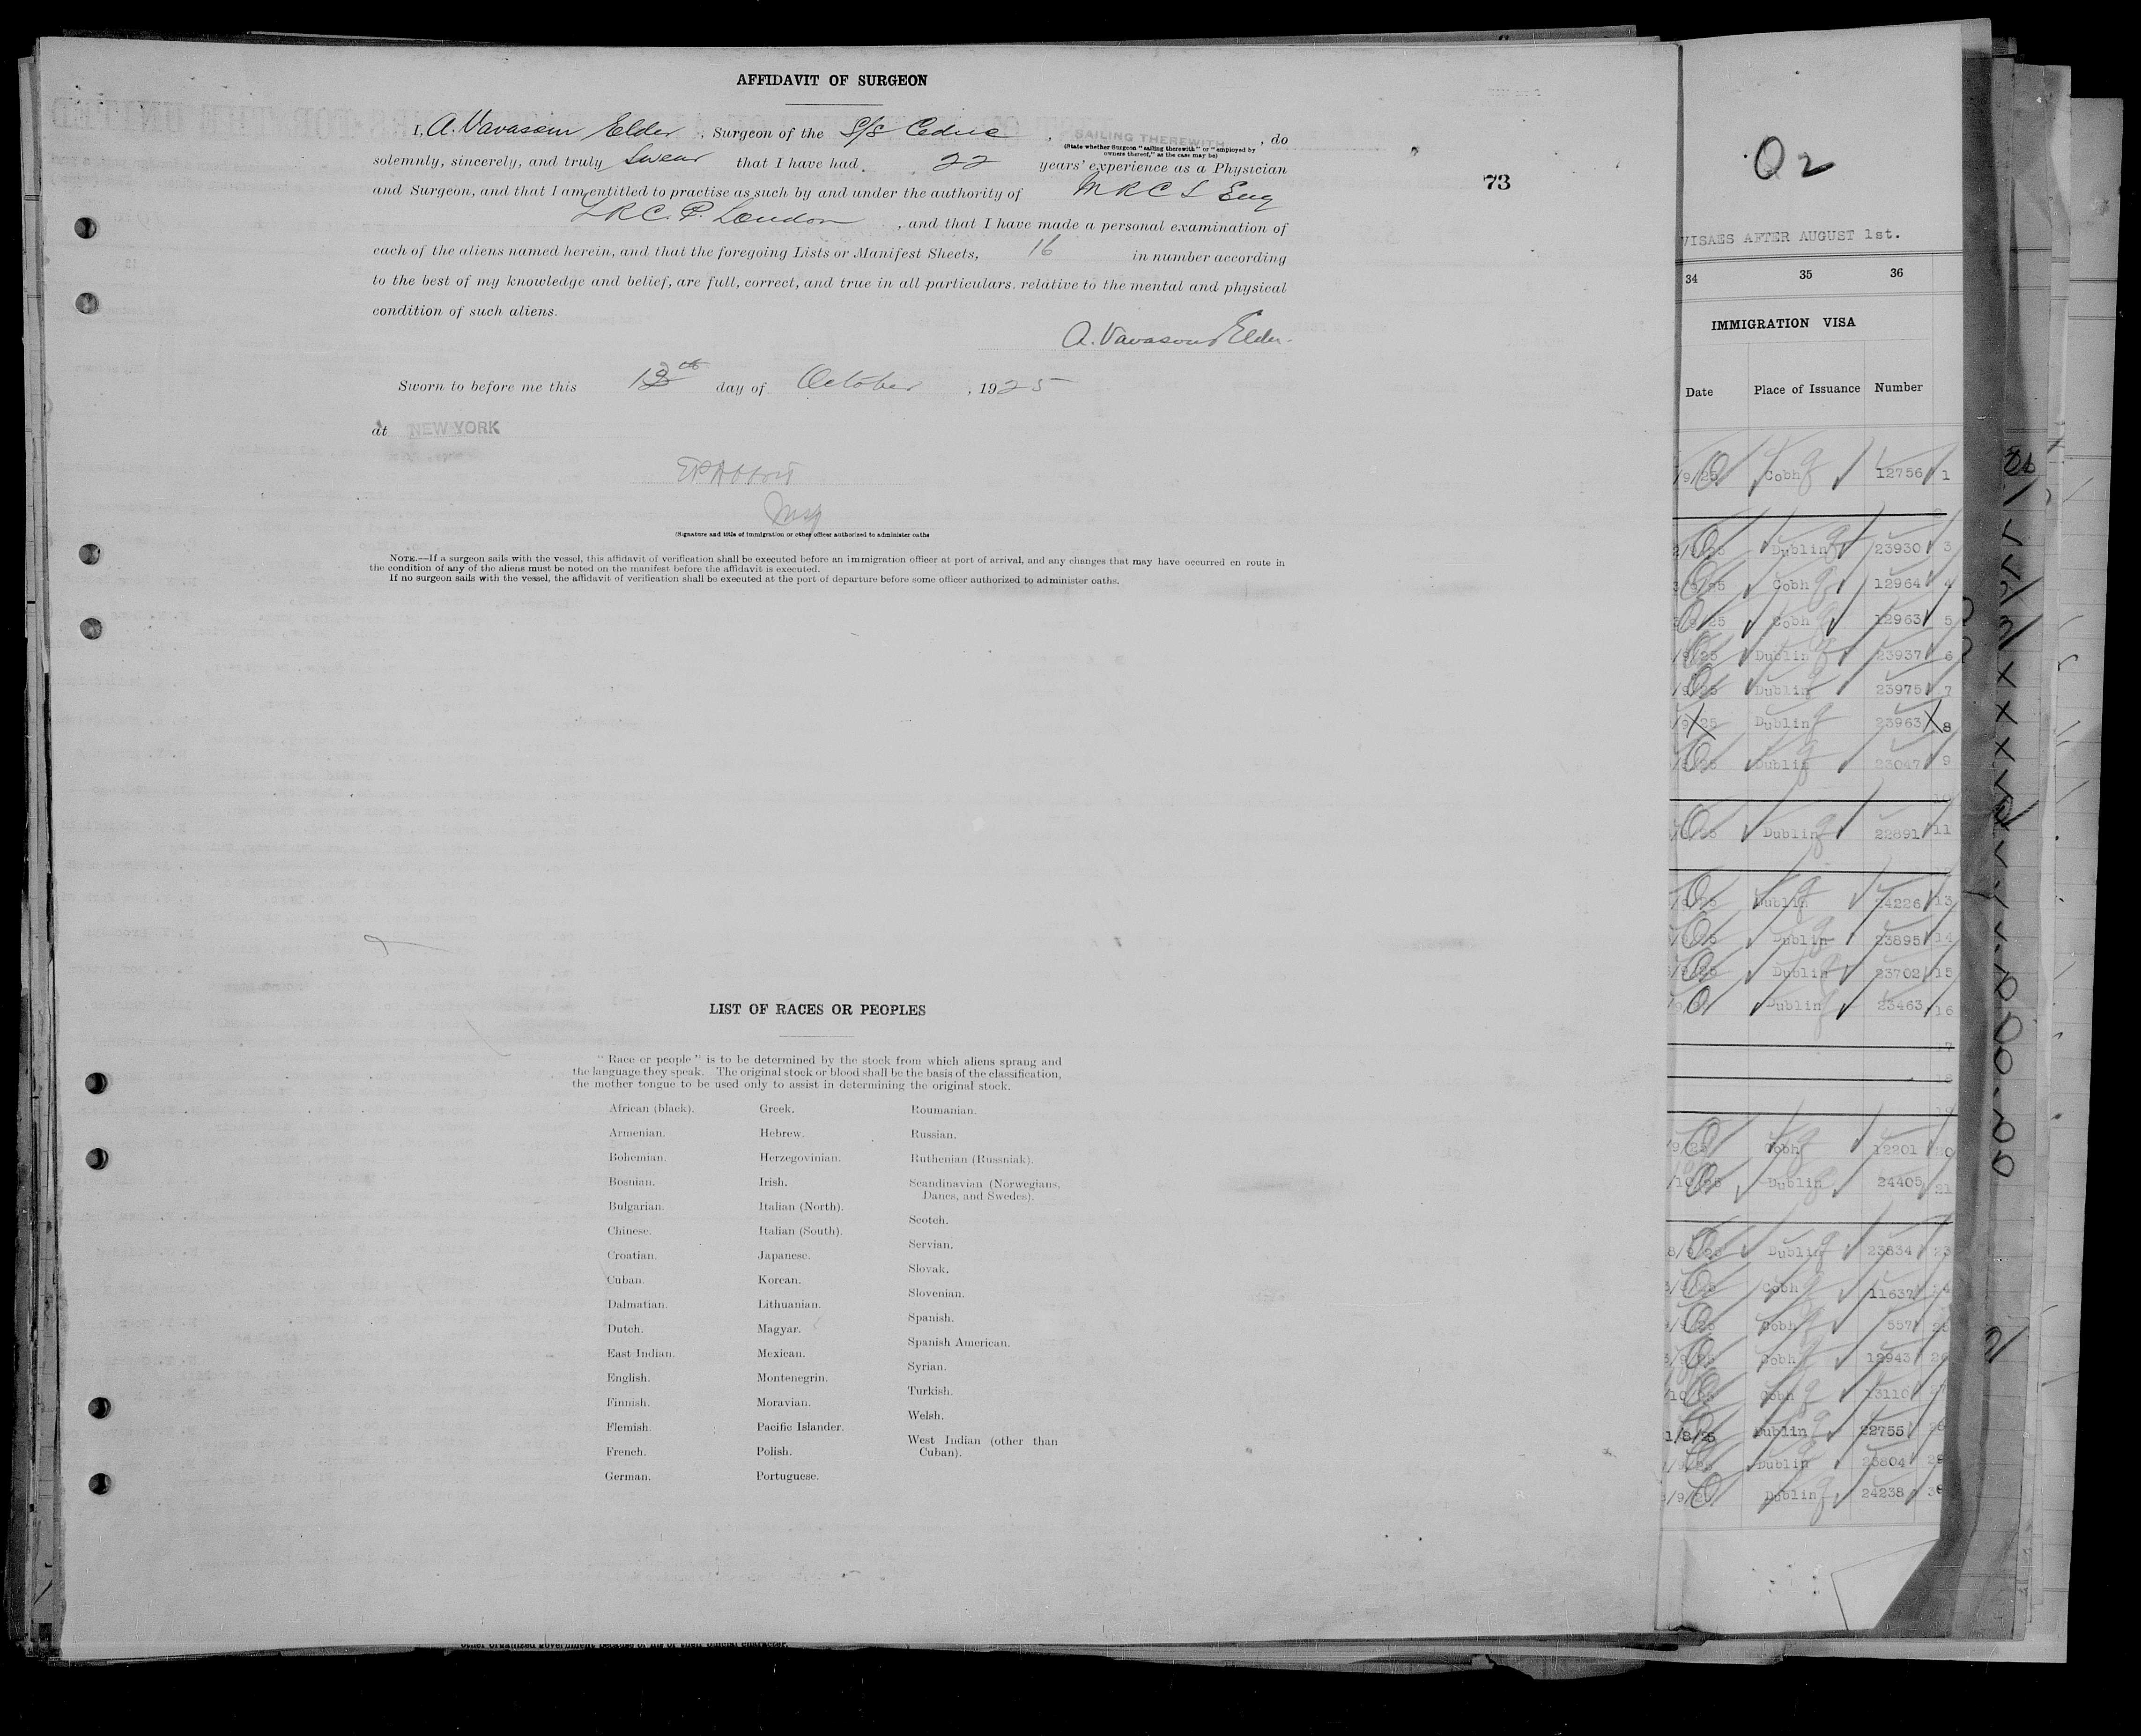 AFFIDAVIT OF SURGEON
I, A. Vavasour Elder, Surgeon of the S/S Cedric, SAILING THEREWITH, do
(State whether Surgeon "sailing therewith" or "employed by
owners thereof," as the case may be)
solemnly, sincerely, and truly swear that I have had 22 years' experience as a Physician
and Surgeon, and that I am entitled to practise as such by and under the authority of M R C S Eng
L R C. P. London, and that I have made a personal examination of
each of the aliens named herein, and that the foregoing Lists or Manifest Sheets, 16 in number according
to the best of my knowledge and belief, are full, correct, and true in all particulars, relative to the mental and physical
condition of such aliens.
A. Vavasour Elder.
Sworn to before me this day of October, 1925
at NEW YORK
(Signature and title of immigration or other officer authorized to administer oaths
NOTE.—If a surgeon sails with the vessel, this affidavit of verification shall be executed before an immigration officer at port of arrival, and any changes that may have occurred en route in
the condition of any of the aliens must be noted on the manifest before the affidavit is executed.
If no surgeon sails with the vessel, the affidavit of verification shall be executed at the port of departure before some officer authorized to administer oaths.
73
LIST OF RACES OR PEOPLES
"Race or people" is to be determined by the stock from which aliens sprang and
the language they speak. The original stock or blood shall be the basis of the classification,
the mother tongue to be used only to assist in determining the original stock.
African (black).
Armenian.
Bohemian.
Bosnian.
Bulgarian.
Chinese.
Croatian.
Cuban.
Dalmatian.
Dutch.
East Indian.
English.
Finnish.
Flemish.
French.
German.
Greek.
Hebrew.
Herzegovinian.
Irish.
Italian (North).
Italian (South).
Japanese.
Korean.
Lithuanian.
Magyar.
Mexican.
Montenegrin.
Moravian.
Pacific Islander.
Polish.
Portuguese.
Roumanian.
Russian.
Ruthenian (Russniak).
Scandinavian (Norwegians,
Danes, and Swedes).
Scotch.
Servian.
Slovak.
Slovenian.
Spanish.
Spanish American.
Syrian.
Turkish.
Welsh.
West Indian (other than
Cuban).
VISAES AFTER AUGUST 1st.
34 35 36
IMMIGRATION VISA
Date Place of Issuance Number
/9/25 Cobh 12756 1
/9/25 Dublin 23930 3
/9/25 Cobh 12964 4
/9/25 Cobh 12963 5
/9/25 Dublin 23937 6
/9/25 Dublin 23975 7
/9/25 Dublin 23963 8
Dublin 23047 9
10
Dublin 22891 11
/9/25 Dublin 24226 13
/9/25 Dublin 23895 14
Dublin 23702 15
Dublin 23463 16
17
18
19
/9/25 Cobh 12201 20
/10/25 Dublin 24405 21
8/9/25 Dublin 23834 23
/9/25 Cobh 11637 24
/9/25 Cobh 557 25
/9/25 Cobh 12943 26
/10/25 Cobh 13110 27
1/8/25 Dublin 22755 28
/9/25 Dublin 23804 29
/9/25 Dublin 24238 30